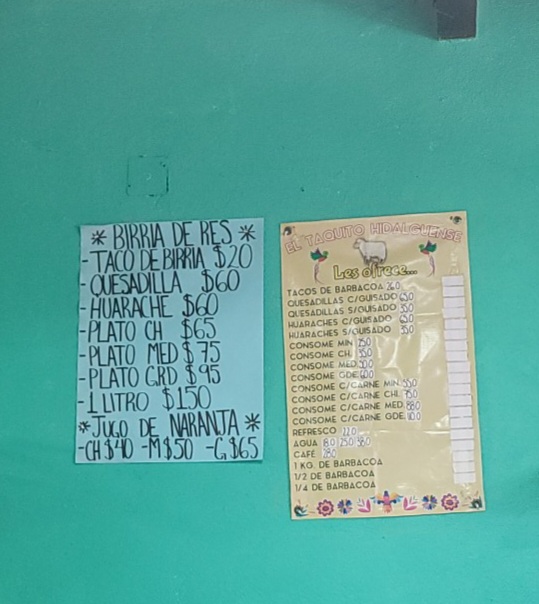 * BIRRIA DE RES *
- TACO DE BIRRIA $20
- QUESADILLA $60
- HUARACHE $60
- PLATO CH $65
- PLATO MED $75
- PLATO GRD $95
- 1 LITRO $150
* JUGO DE NARANJA *
- CH $40 - M $50 - G $65
EL TAQUITO HIDALGUENSE
Les ofrece...
TACOS DE BARBACOA
QUESADILLAS C/GUISADO
QUESADILLAS S/GUISADO
HUARACHES C/GUISADO
HUARACHES S/GUISADO
CONSOME MIN.
CONSOME CH.
CONSOME MED.
CONSOME GDE.
CONSOME C/CARNE MIN.
CONSOME C/CARNE CHI.
CONSOME C/CARNE MED.
CONSOME C/CARNE GDE.
REFRESCO
AGUA
CAFÉ
1 KG. DE BARBACOA
1/2 DE BARBACOA
1/4 DE BARBACOA